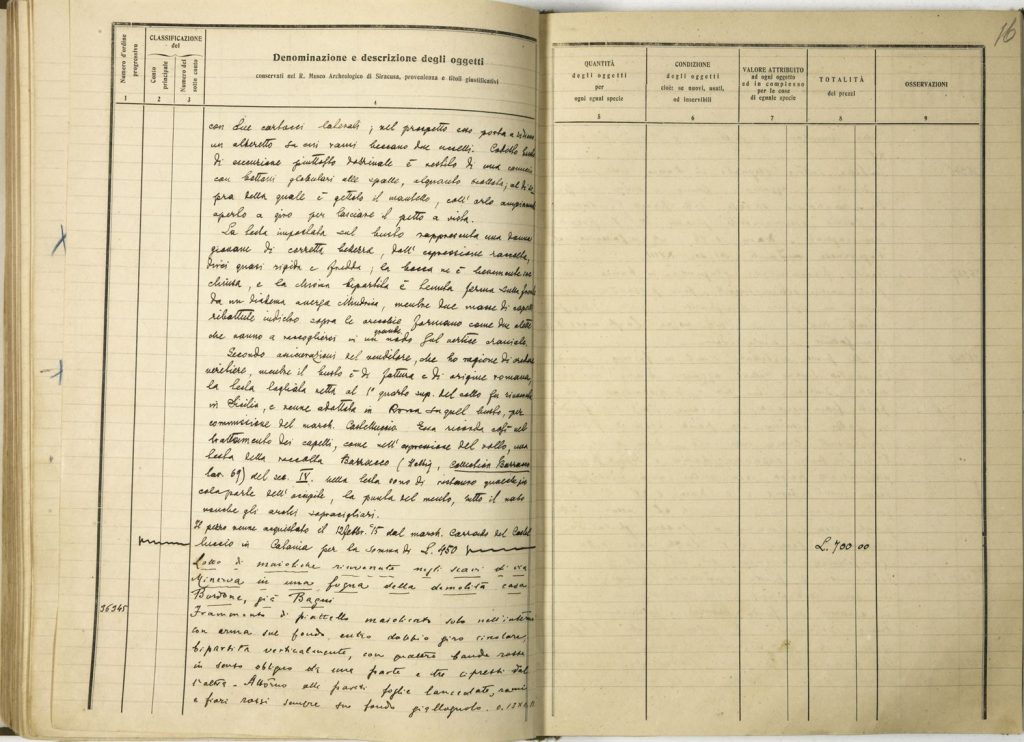 16
Numero d'ordine progressivo
CLASSIFICAZIONE
del
Conto principale
Numero del sotto conto
Denominazione e descrizione degli oggetti
conservati nel R. Museo Archeologico di Siracusa, provenienza e titoli giustificativi
1 2 3 4
QUANTITÀ
degli oggetti
per
ogni egual specie
5
CONDIZIONE
degli oggetti
cioè: se nuovi, usati,
od inservibili
6
VALORE ATTRIBUITO
ad ogni oggetto
ed in complesso
per le cose
di eguale specie
7
TOTALITÀ
dei prezzi
8
OSSERVAZIONI
9
con due cartocci laterali; nel prospetto esso porta a
un alberetto su cui rami beccano due uccelli. Codesto busto
di esecuzione piuttosto dozzinale è vestito di una
con bottoni globulari alle spalle, alquanto scollata; al di so
pra della quale è gettato il mantello, coll'orlo ampiamente
aperto a giro per lasciare il petto a vista.
La testa impostata sul busto rappresenta una donna
giovane di corretta bellezza, dall'espressione raccolta,
direi quasi rigida e fredda; la bocca ne è lievemente
chiusa, e la chioma bipartita è tenuta ferma sulla fronte
da un diadema a, mentre due masse di capelli
ributtate indietro sopra le orecchie formano come due alette
che vanno a raccogliersi in un grande nodo sul vertice craniale.
Secondo asseverazioni del venditore, che ho ragione di credere
veritiere, mentre il busto è di fattura e di origine romana
la testa tagliata netta al 1° quarto sup. del collo fu rinvenuta
in Sicilia, e venne adattata in Roma su quel busto, per
commissione del march. Castelluccio. Essa ricorda così nel
trattamento dei capelli, come nell'espressione del volto, una
testa della raccolta Barracco (Helbig, Collection Barracco
tav. 69) del sec. IV. Nella testa sono di restauro qualche pic
cola parte dell'occipite, la punta del mento, tutto il naso
nonché gli archi sopracigliari.
Il pezzo venne acquistato il 12 febbr. '15 dal march. Corrado del Castel
luccio in Catania per la somma di L. 450
L. 700 00
Lotto di maioliche rinvenute negli scavi di via
Minerva in una fogna della demolita casa
Bordone, già Bagni
36345
Frammento di piattello maiolicato solo nell'interno
con arma sul fondo entro doppio giro circolare,
bipartita verticalmente, con quattro bande rosse
in senso obliquo da una parte e tre cipressi dal
l'altra. Attorno alle pareti foglie lanceolate, rami
e fiori rossi sempre su fondo giallognolo. 0.13 x